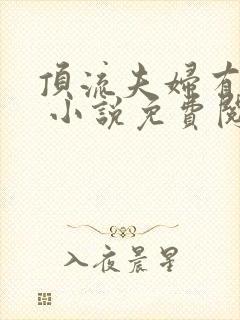 頂流夫婦有
小說免費閱
入夜晨星